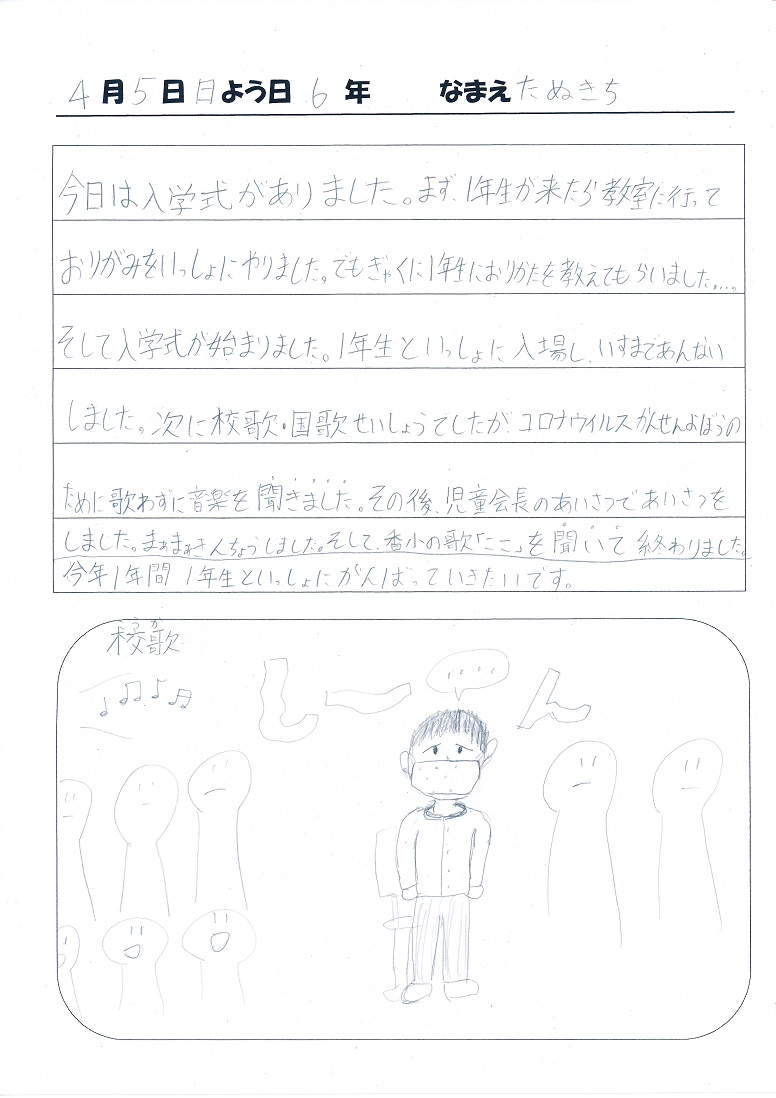 4月5日日よう日 6年 なまえたぬきち
今日は入学式がありました。まず、1年生が来たら教室に行って
おりがみをいっしょにやりました。でもぎゃくに1年生におりかたを教えてもらいました…。
そして入学式が始まりました。1年生といっしょに入場し、いすまであんない
しました。次に校歌・国歌せいしょうでしたが、コロナウイルスかんせんよぼうの
ために歌わずに音楽を聞きました。その後、児童会長のあいさつであいさつを
しました。まぁまぁきんちょうしました。そして、香小の歌「ここ」を聞いて終わりました。
今年1年間 1年生といっしょにがんばっていきたいです。
こうか
校歌
しーん
....